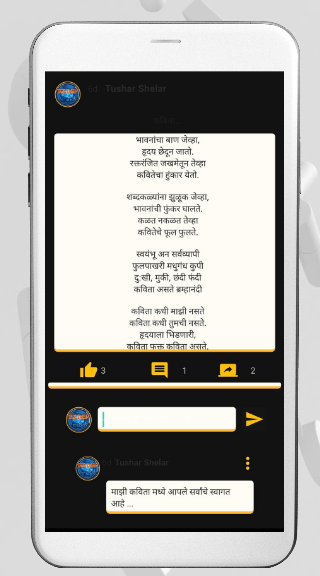 6d Tushar Shelar
भावनांचा बाण जेव्हा,
हृदय छेदून जातो.
रक्तरंजित जखमेतून तेव्हा
कवितेचा हुंकार येतो.
शब्दकळ्यांना झुळूक जेव्हा,
भावनांची फुंकर घालते.
कळत नकळत तेव्हा
कवितेचे फूल फुलते.
स्वयंभू अन सर्वव्यापी
फुलपाखरी मधुगंध कुपी
दु:खी, मुकी, छंदी फंदी
कविता असते ब्रम्हानंदी
कविता कधी माझी नसते
कविता कधी तुमची नसते.
हृदयाला भिडणारी,
कविता फक्त कविता असते.
3 1 2
6d Tushar Shelar
माझी कविता मध्ये आपले सर्वांचे स्वागत
आहे ...